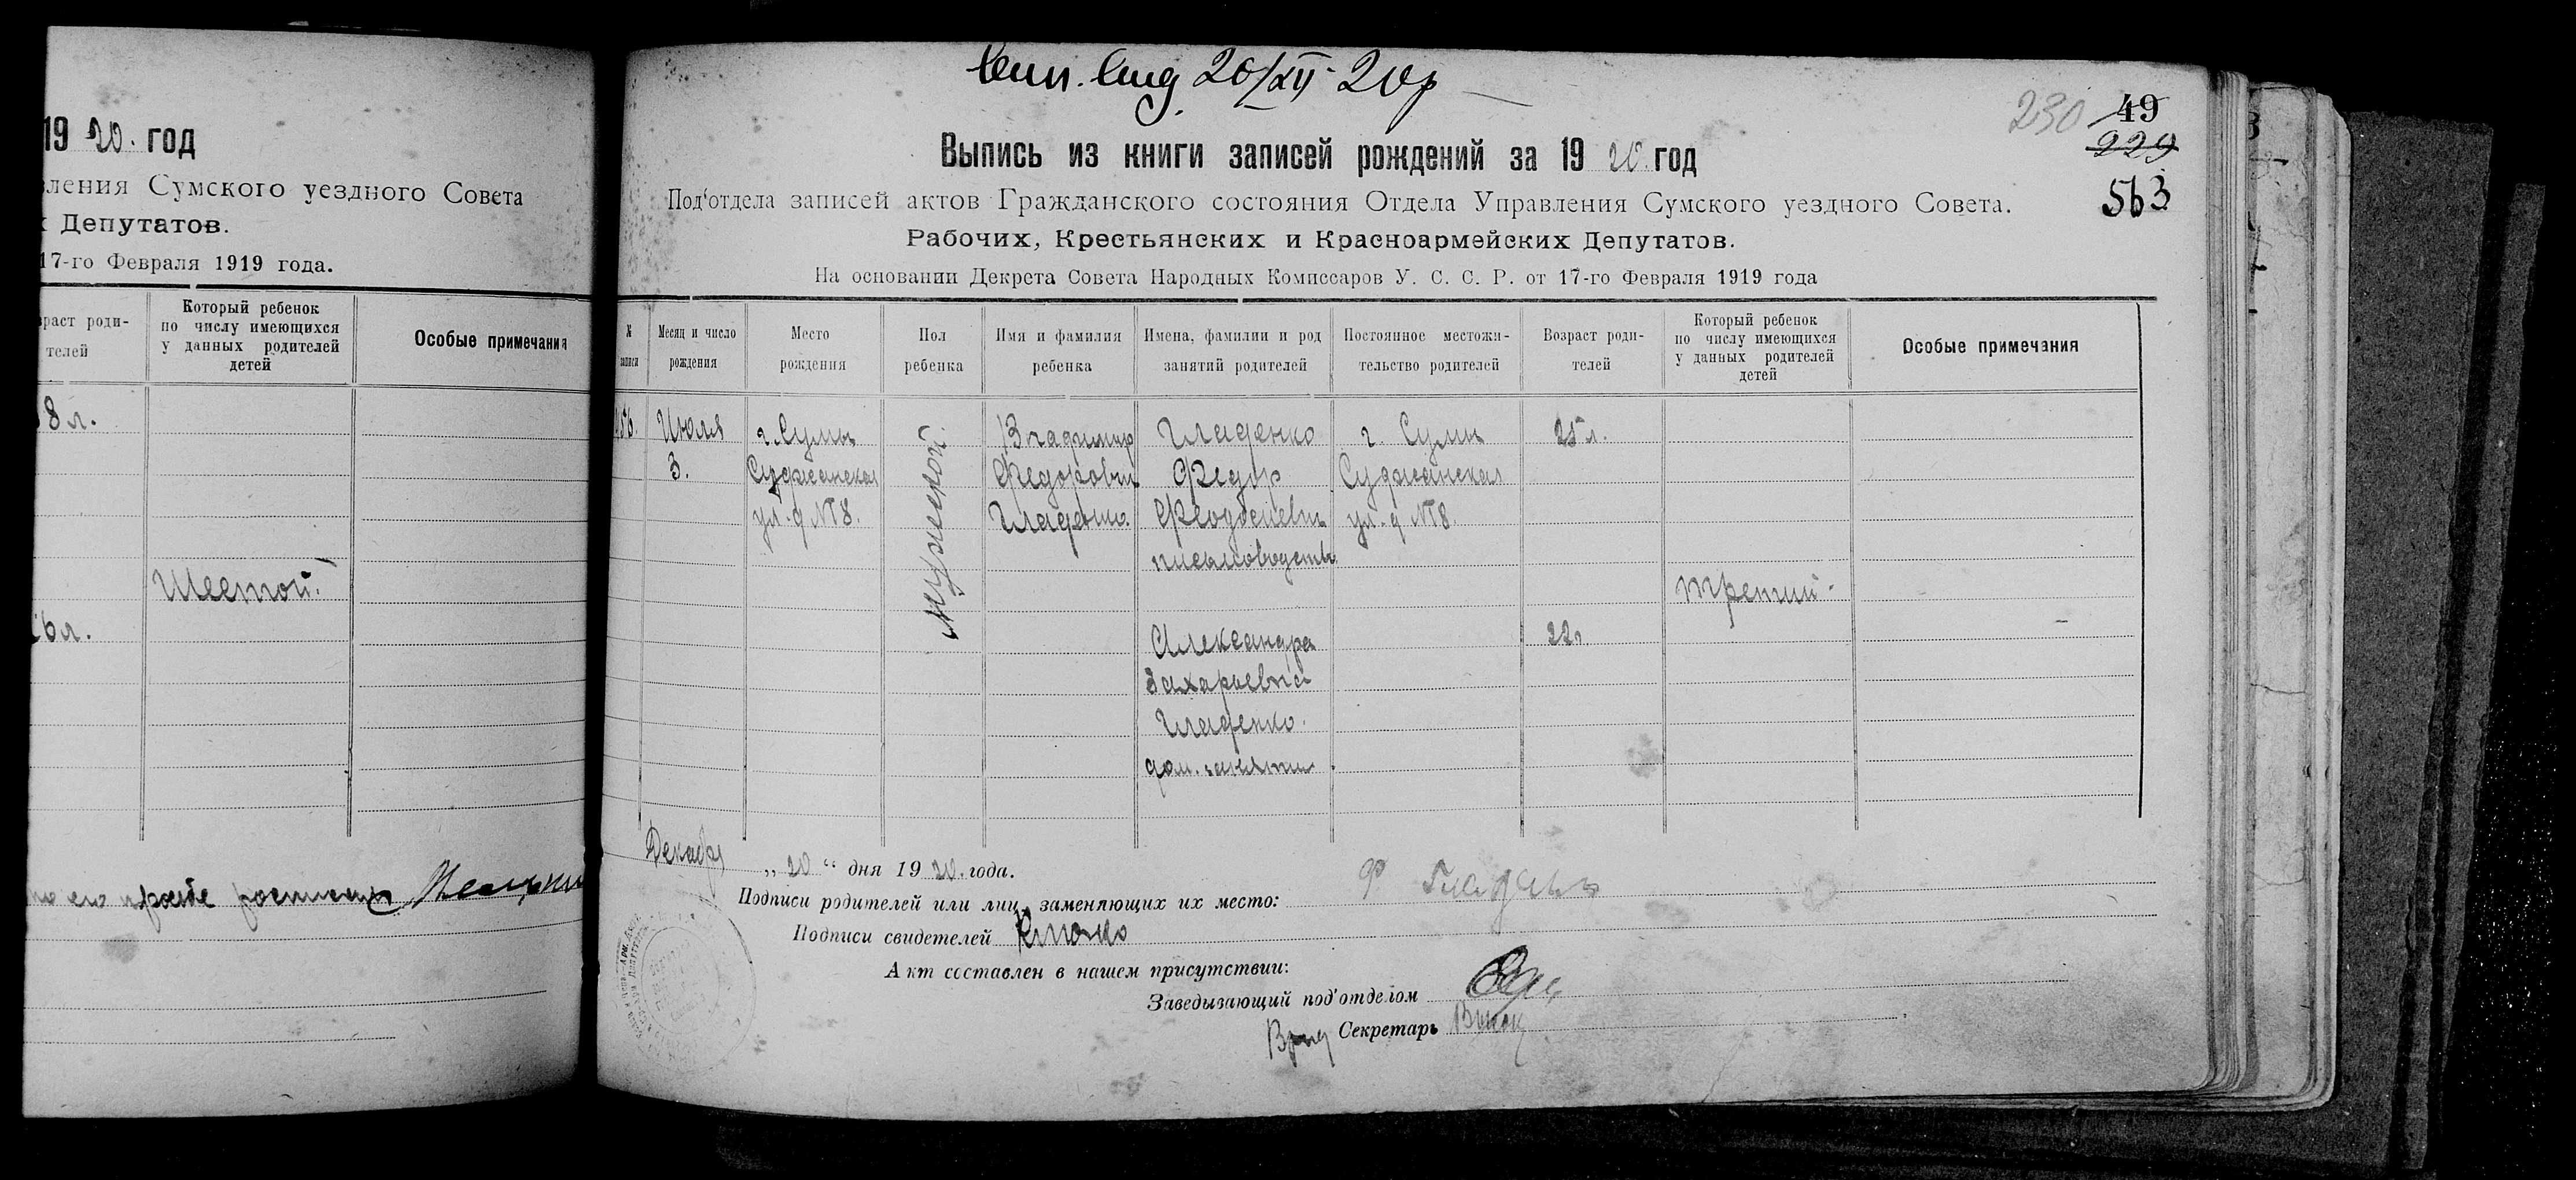 19 20. год
вления Сумского уездного Совета
х Депутатов.
17-го Февраля 1919 года.
раст роди-
телей
Который ребенок
по числу имеющихся
у данных родителей
детей
Особые примечания
8 л.
Шестой.
6 л.
его просьбе
20/XII 20 р
230
49
229
563
Выпись из книги записей рождений за 19 20. год
Под‘отдела записей актов Гражданского состояния Отдела Управления Сумского уездного Совета.
Рабочих, Крестьянских и Красноармейских Депутатов.
На основании Декрета Совета Народных Комиссаров У. С. С. Р. от 17-го Февраля 1919 года
№
записи
Месяц и число
рождения
Место
рождения
Пол
ребенка
Имя и фамилия
ребенка
Имена, фамилии и род
занятий родителей
Постоянное местожи-
тельство родителей
Возраст роди-
телей
Который ребенок
по числу имеющихся
у данных родителей
детей
Особые примечания
Июля
3.
г. Сумы
Суджанская
ул. д № 8.
мужской.
Владимир
Федорович
Гладенко.
Гладенко
Федор
Феодосиевич
письмоводитель
Александра
Захарьевна
Гладенко.
дом. занятия
г. Сумы
Суджанская
ул. д № 8
25 л.
22л
третий
Декабр „ 20 “ дня 19 20. года.
Подписи родителей или лиц, заменяющих их место: Ф Гладенко
Подписи свидетелей
Акт составлен в нашем присутствии:
Заведывающий под‘отделом
Врид Секретарь